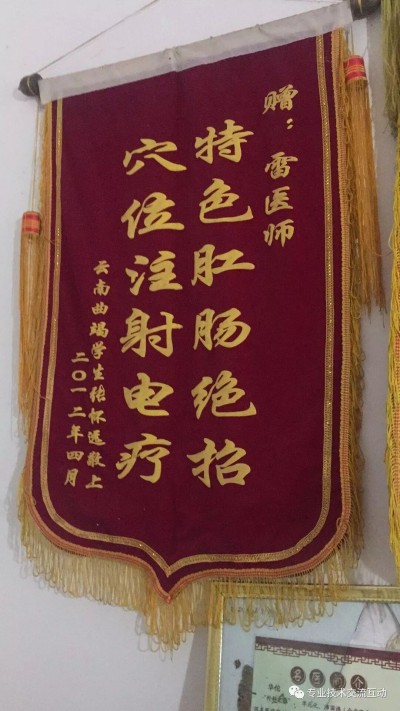 赠：雷医师
特色肛肠绝招
穴位注射电疗
云南曲塥学生张怀远敬上
二〇一二年四月
名医简介
华佗
专业技术交流互动